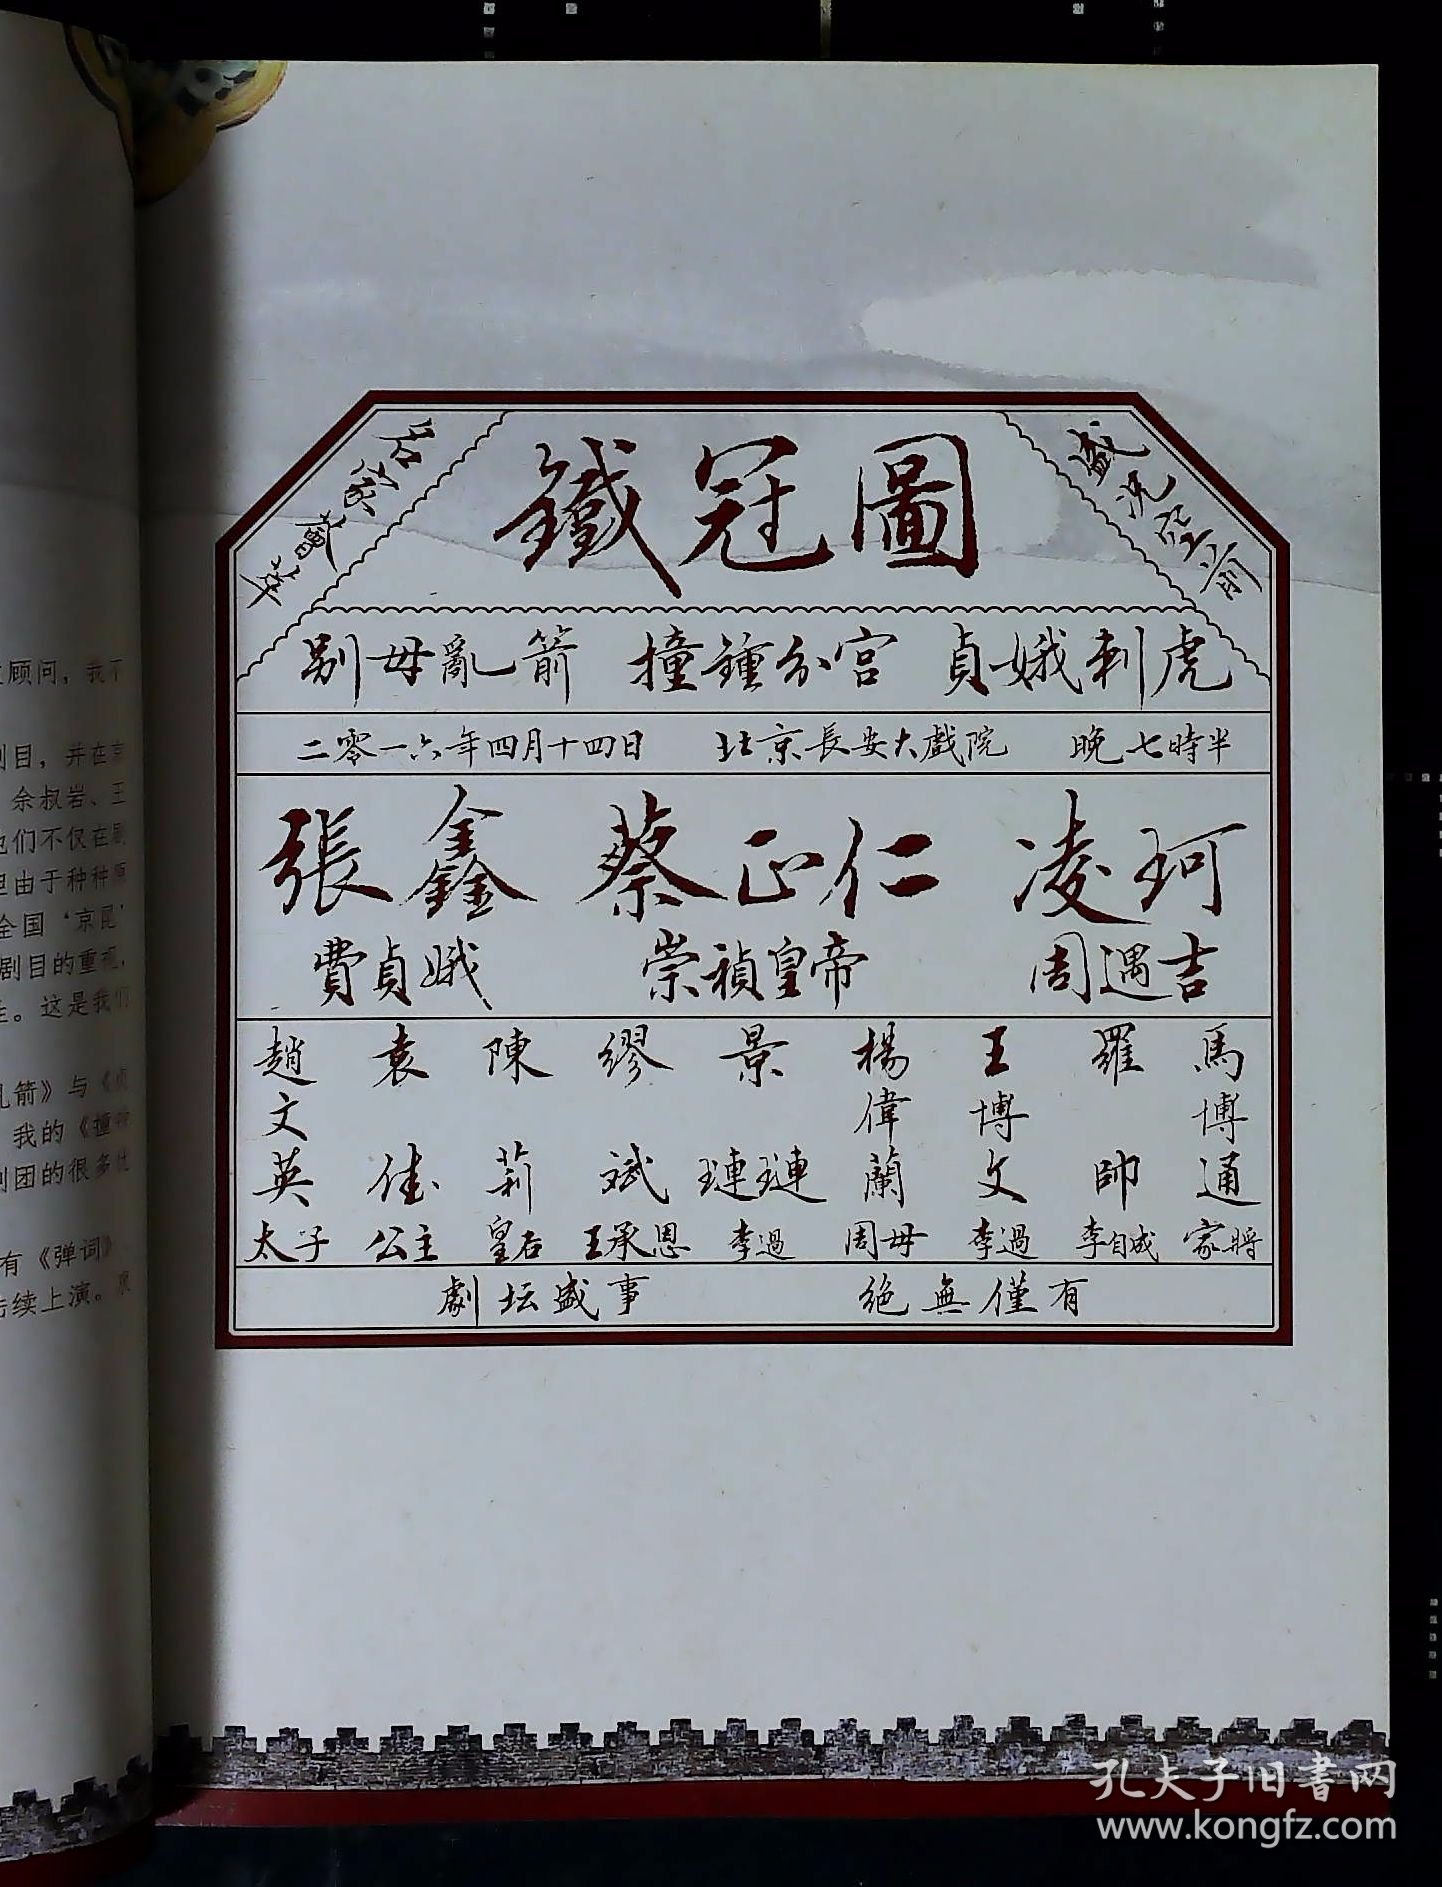 顾问，我不
剧目，并在京
余叔岩、王
他们不仅在剧
但由于种种原
全国‘京昆’
剧目的重视，
生。这是我们
乱箭》与《贞
我的《撞钟
剧团的很多优
有《弹词》
陆续上演。京
名家薈萃
鐵冠圖
盛況空前
别母亂箭 撞鐘分宮 貞娥刺虎
二零一六年四月十四日 北京長安大戲院 晚七時半
張鑫 蔡正仁 凌珂
費貞娥 崇禎皇帝 周遇吉
趙文英 袁佳 陳莉 繆斌 景璉璉 楊偉蘭 王博文 羅帥 馬博通
太子 公主 皇后 王承恩 李過 周母 李過 李自成 家將
劇坛盛事 绝無僅有
孔夫子旧书网
www.kongfz.com